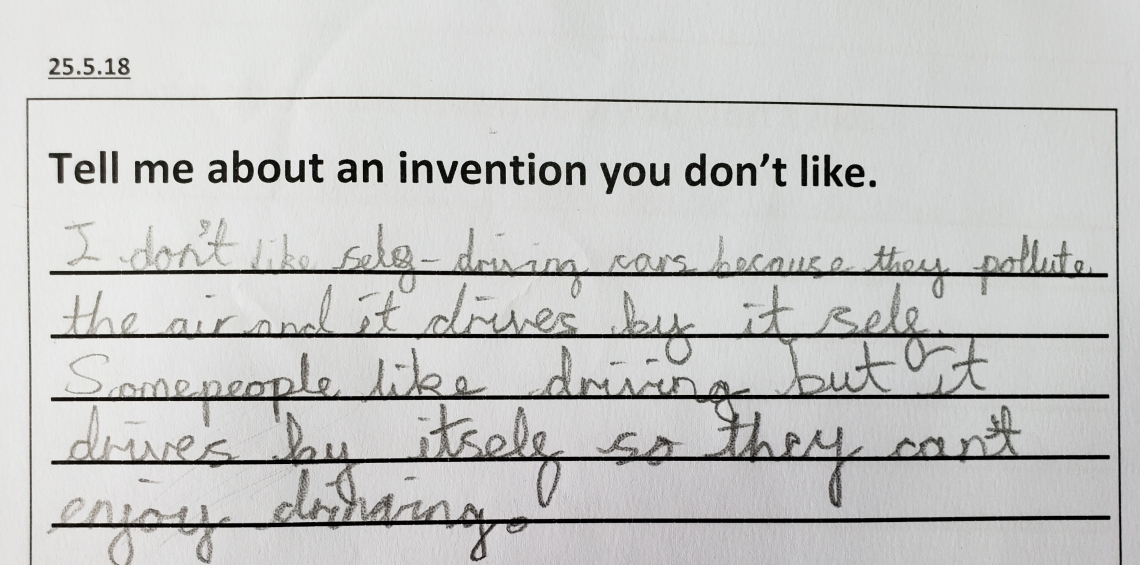 25.5.18
Tell me about an invention you don't like.
I don't like self-driving cars because they pollute
the air and it drives by it self.
Some people like driving but it
drives by itself so they can't
enjoy driving.